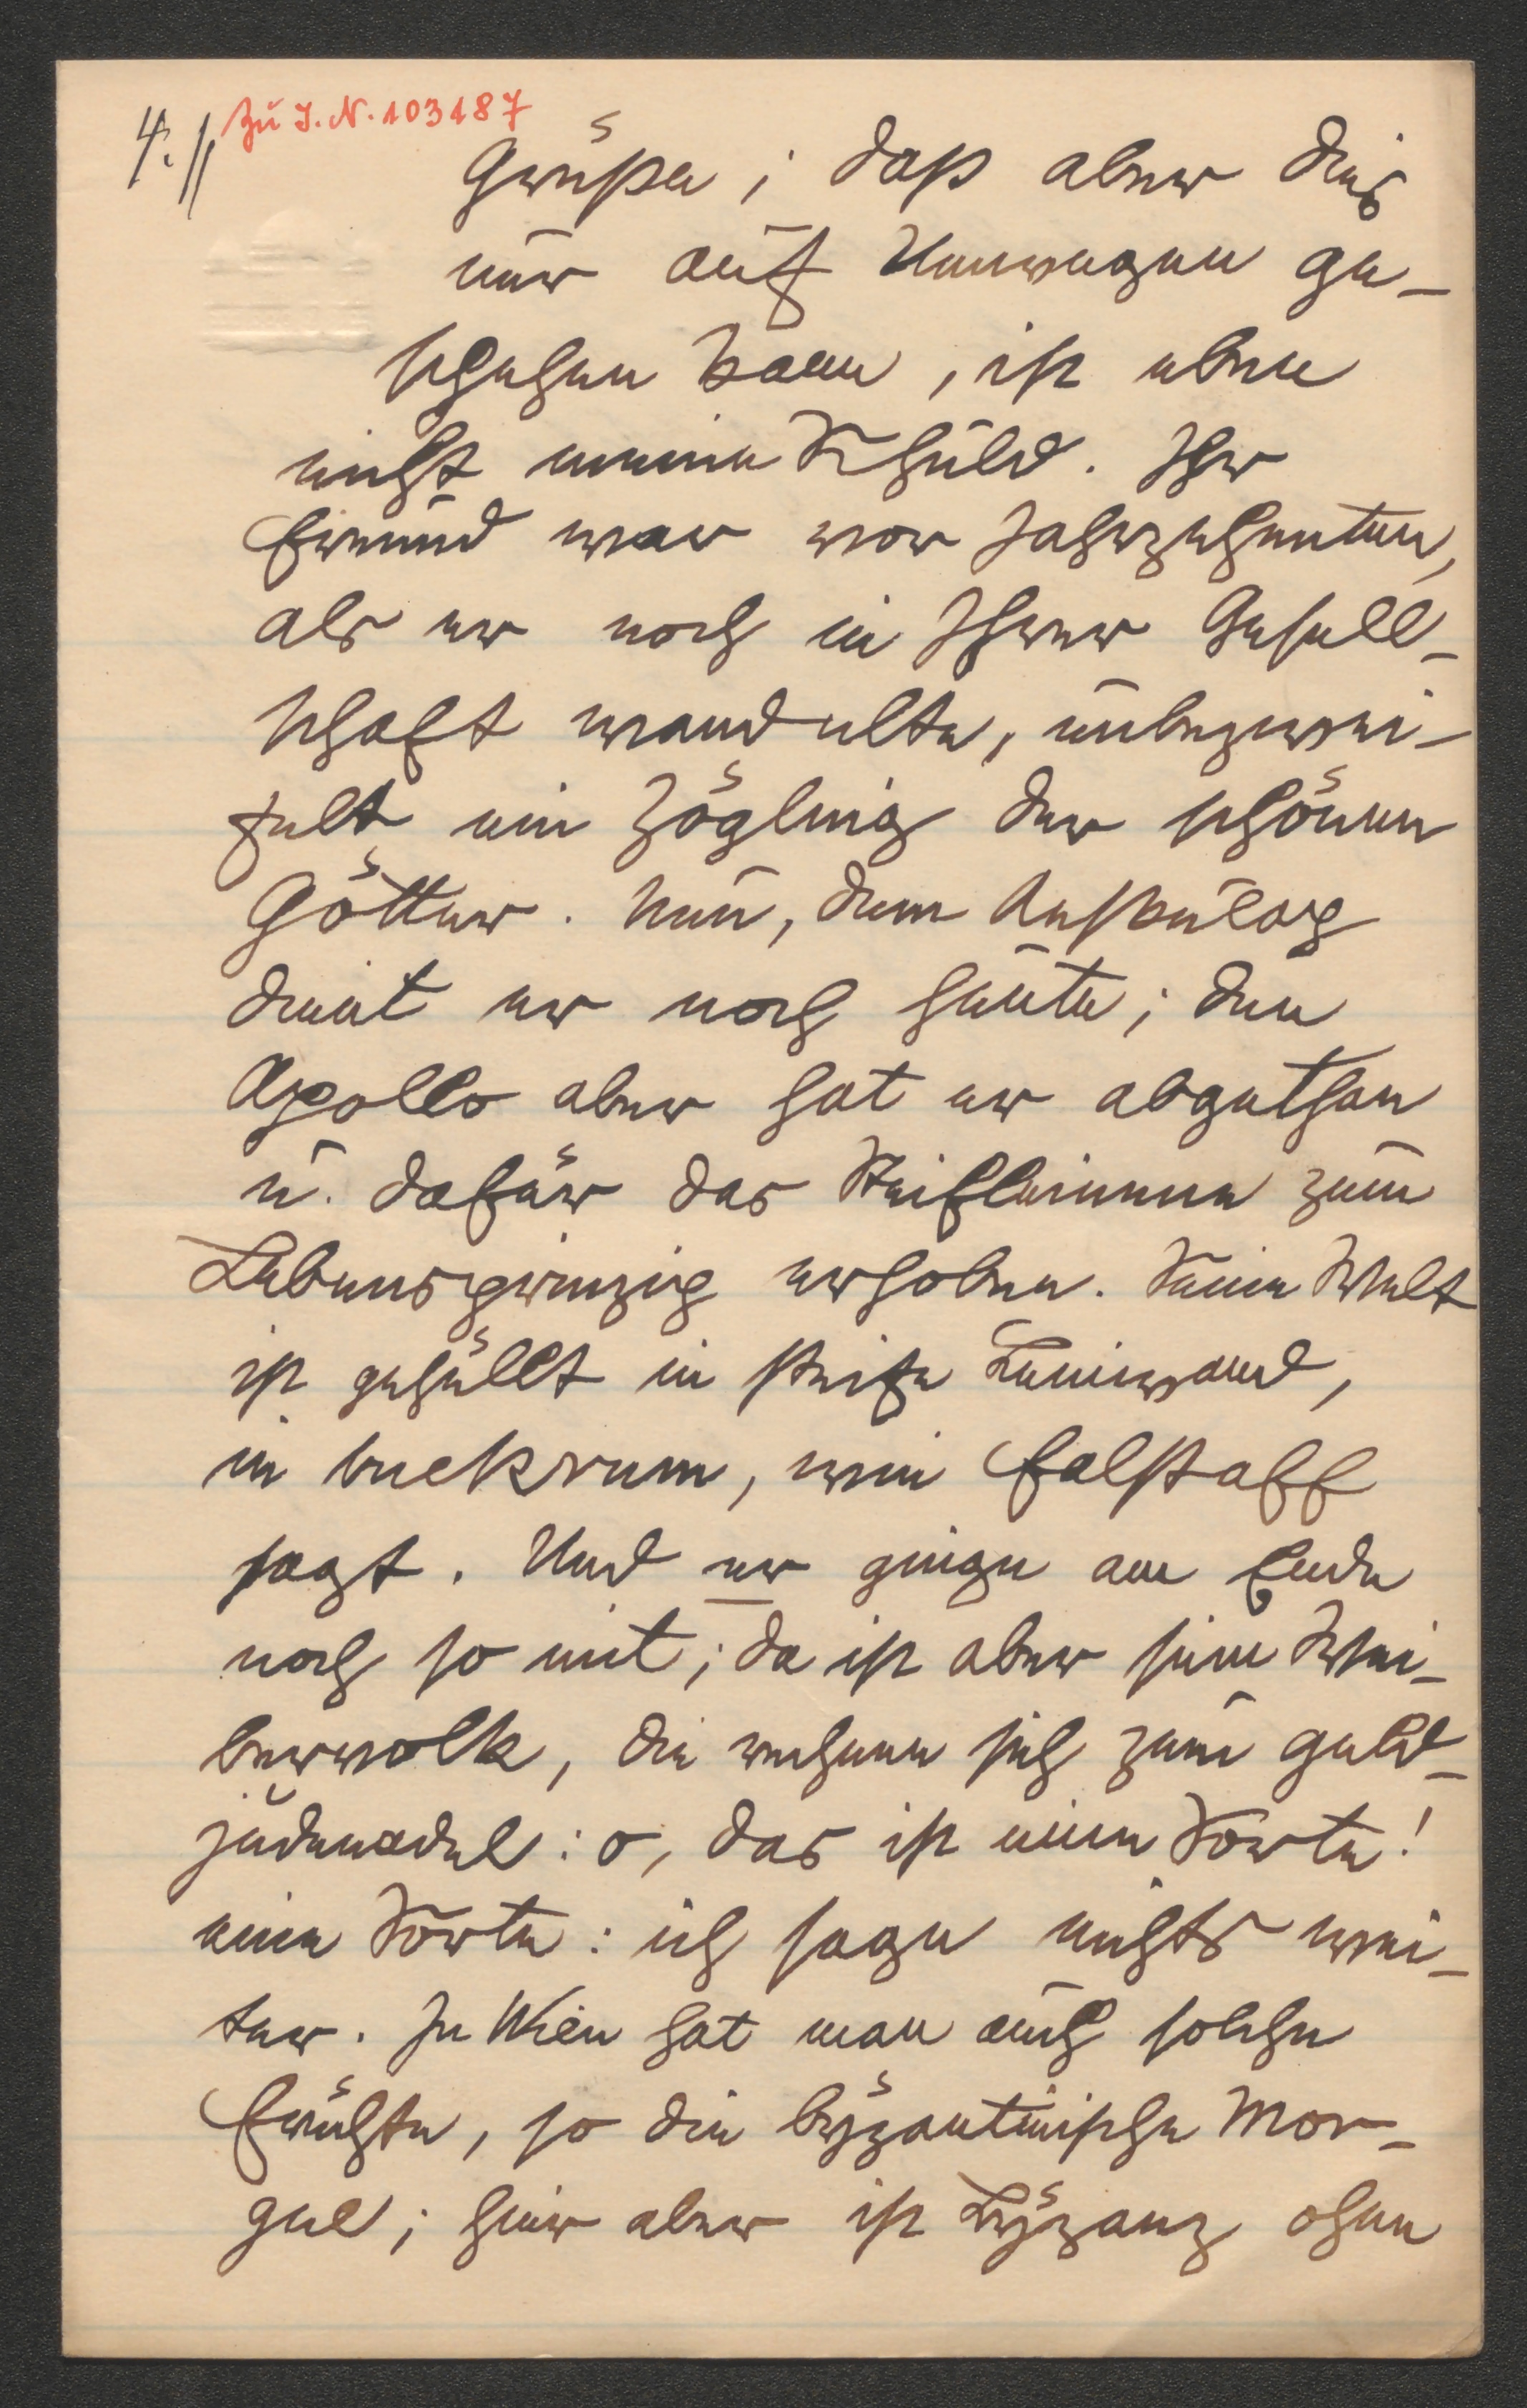 4.//
Zu I.N. 103187
Grüße; daß aber dies
nur auf Umwegen ge-
schehen kann, ist eben
nicht meine Schuld. Ihr
Freund war vor Jahrzehenten,
als er noch in Ihrer Gesell-
schaft wandelte, unbezwei-
felt ein Zögling der schönen
Götter. Nun, dem Aeskulap
dient er noch heute; den
Apollo aber hat er abgethan
u. dafür das Steifleinene zum
Lebensprinzip erhoben. Seine Welt
ist gehüllt in steife Leinwand,
in buckrum, wie Falstaff
sagt. Und er ginge am Ende
noch so mit; da ist aber sein Wei-
bervolk, die rechnen sich zum Geld-
judenadel: o, das ist eine Sorte!
eine Sorte: ich sage nichts wei-
ter. In Wien hat man auch solche
Früchte, so die byzantinische Mor-
gel; hier aber ist Byzanz ohne